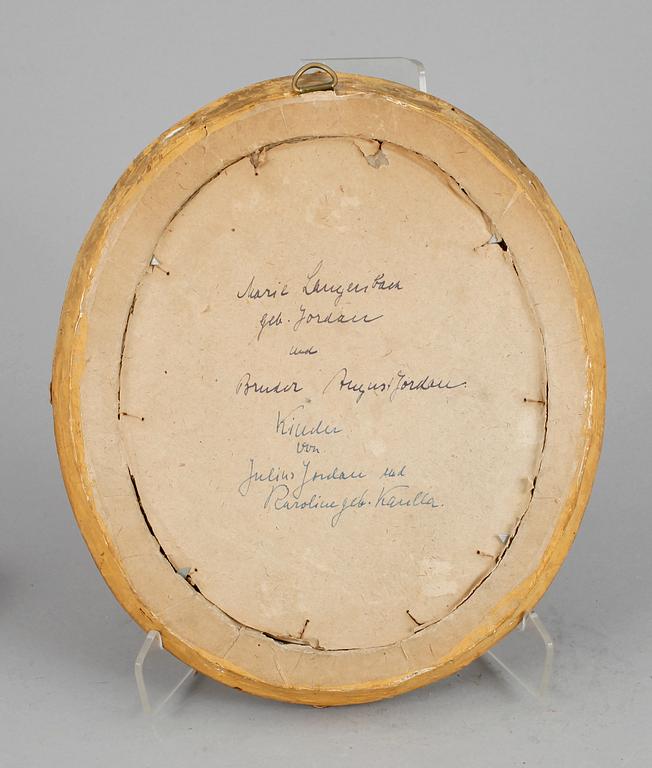 Marie Langenbach
geb. Jordan
und
Bruder August Jordan.
Kinder
von
Julius Jordan und
Karolin geb. Kaulla.